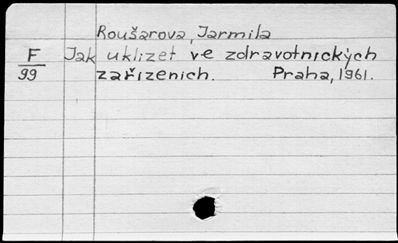 Roušarova, Jarmila
F Jak uklizet ve zdravotnických
99 zařizenich. Praha, 1961.